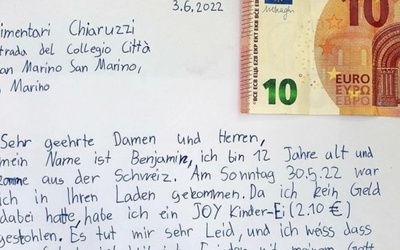 3.6.2022
imentari Chiaruzzi
trada del Collegio Città
an Marino San Marino,
Marino
10
10
EURO
ΕΥΡΩ
ЕВРО
Sehr geehrte Damen und Herren,
mein Name ist Benjamin, ich bin 12 Jahre alt und
komme aus der Schweiz. Am Sonntag 30.5.22 war
ich in Ihren Laden gekommen. Da ich kein Geld
dabei hatte, habe ich ein JOY Kinder-Ei (2.10 €)
gestohlen. Es tut mir sehr Leid, und ich weiss dass